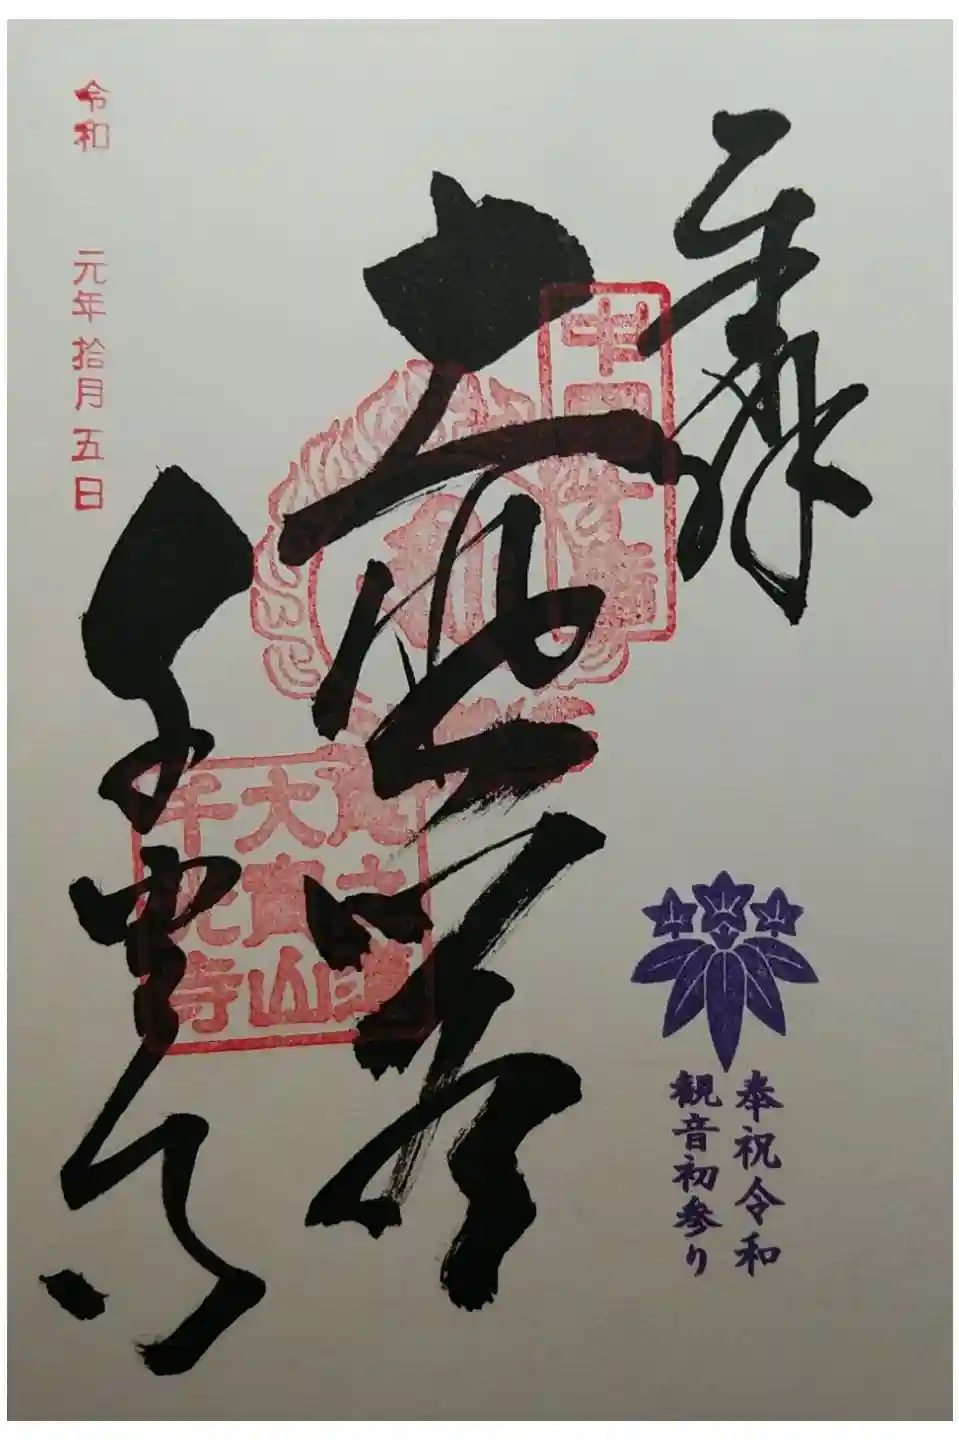 奉拝
中国十番
尾之道
大寶山
千光寺
千光寺
奉祝令和
観音初参り
令和 元年拾月五日